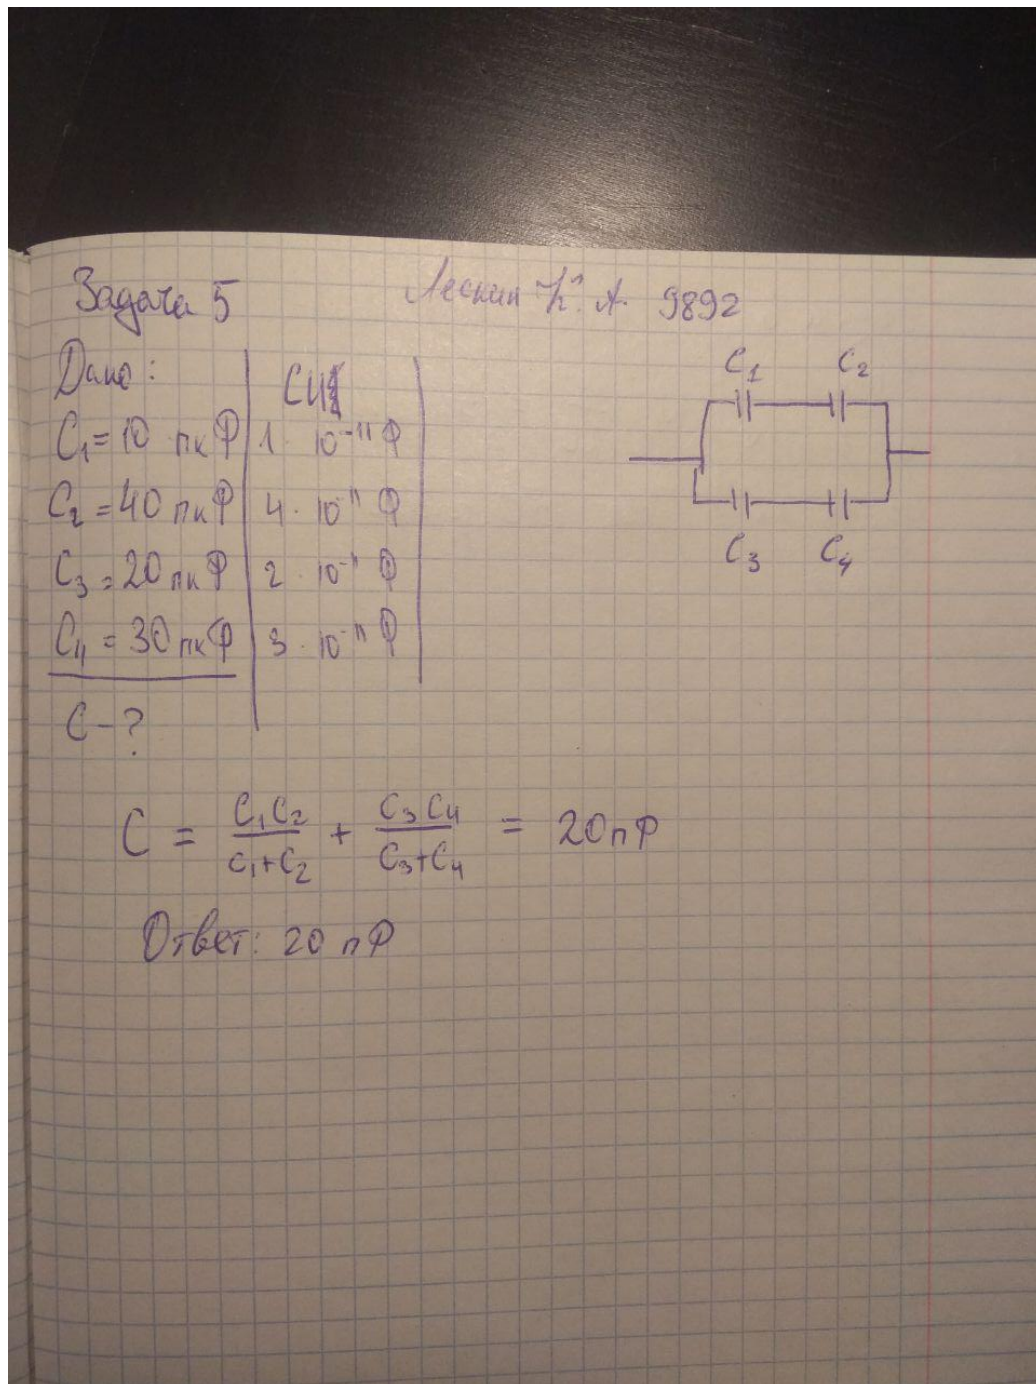 Задача 5 Лескин К. А. 9892
Дано: СИ
C₁ = 10 пкФ 1 · 10⁻¹¹ Ф
C₂ = 40 пкФ 4 · 10⁻¹¹ Ф
C₃ = 20 пкФ 2 · 10⁻¹¹ Ф
C₄ = 30 пкФ 3 · 10⁻¹¹ Ф
C - ?
C₁ C₂
C₃ C₄
C = C₁C₂/(C₁+C₂) + C₃C₄/(C₃+C₄) = 20 пФ
Ответ: 20 пФ